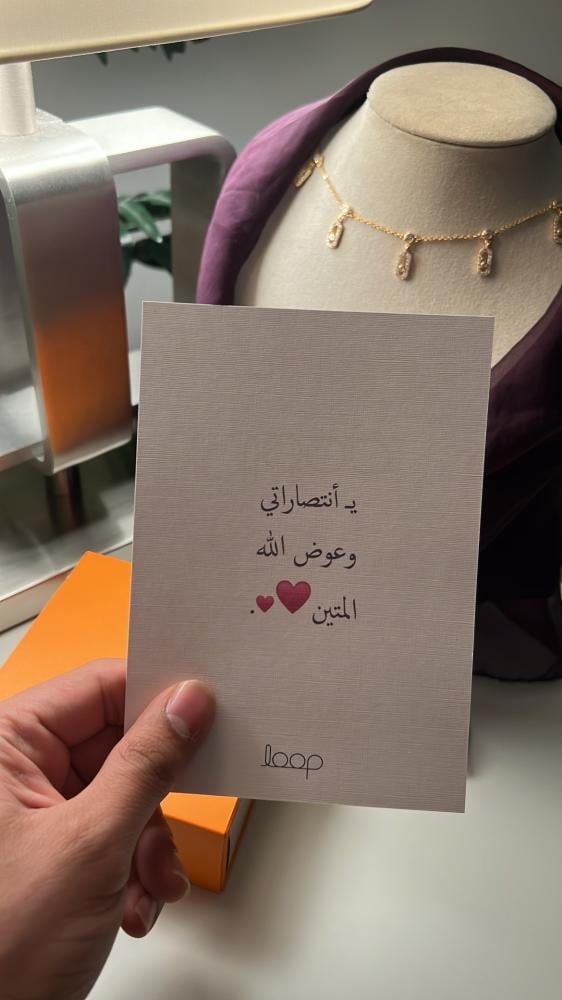 يـ أنتصاراتي
وعوض الله
المتين❤️❤️.
loop